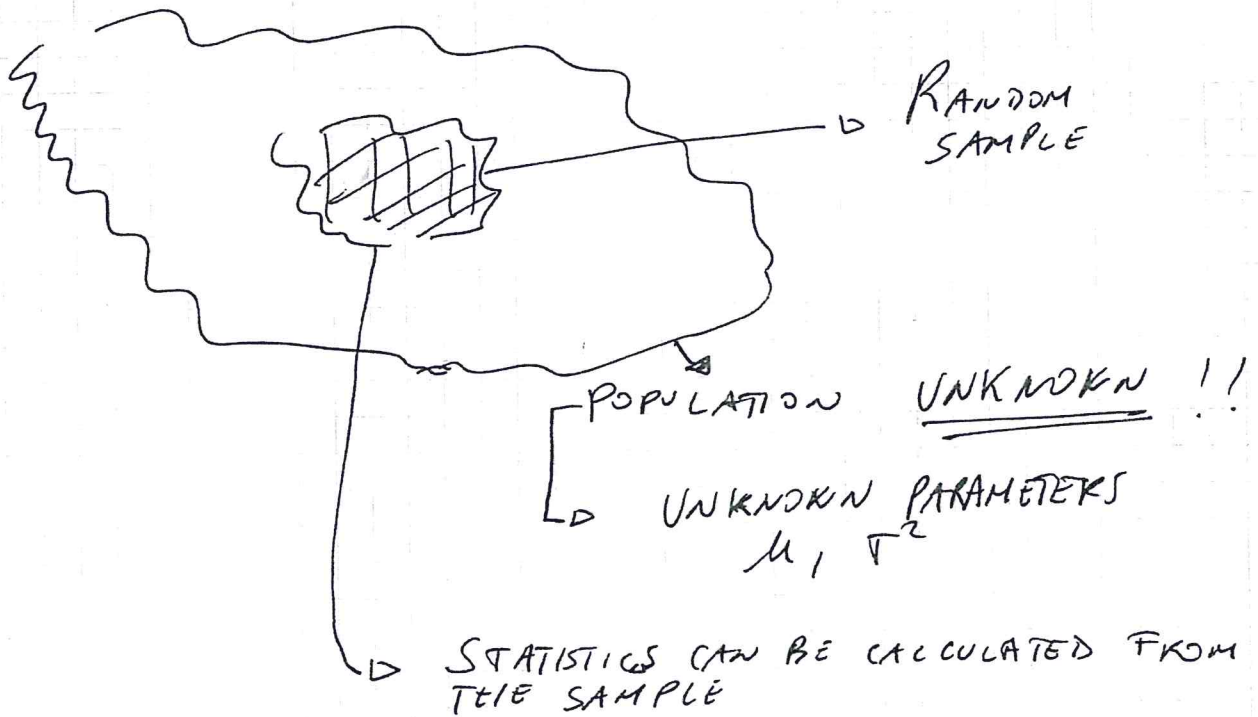 RANDOM
SAMPLE
POPULATION UNKNOKN !!
UNKNOKN PARAMETERS
μ, σ²
STATISTICS CAN BE CALCULATED FROM
THE SAMPLE